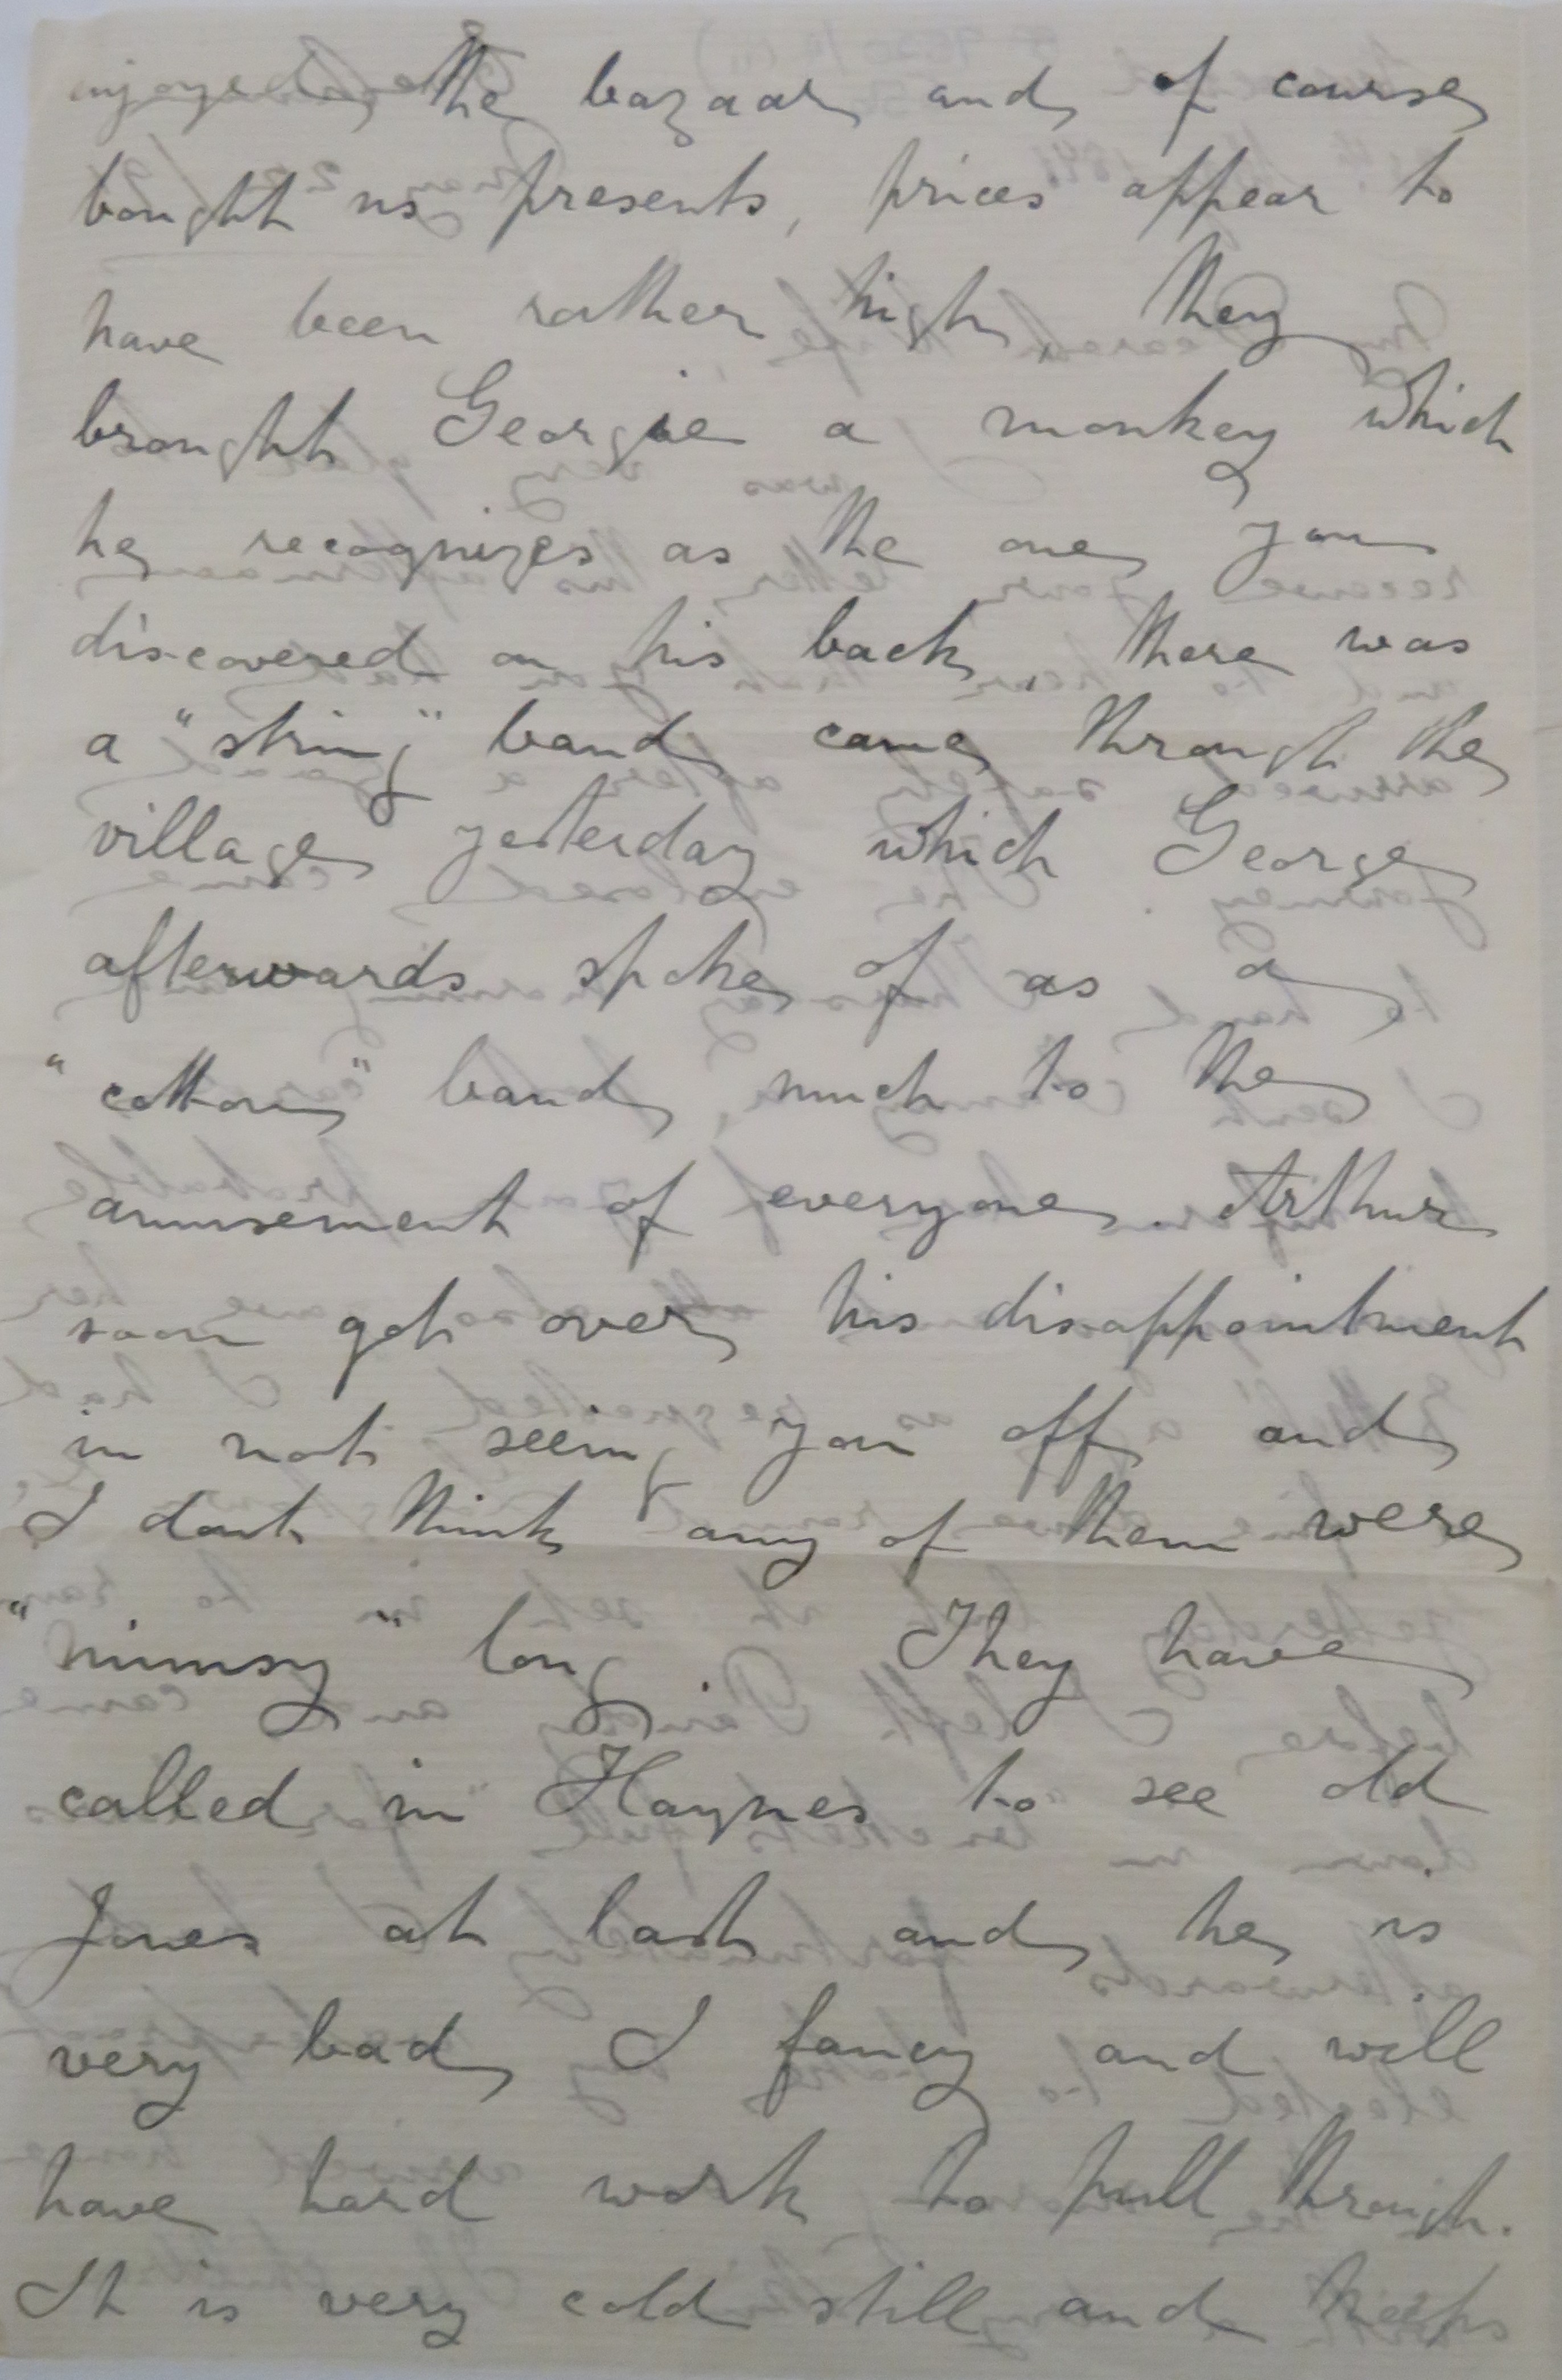 injoyed the bazaar and of course
bought us presents, prices appear to
have been rather high, they
brought Georgie a monkey which
he recognizes as the one you
discovered on his back, there was
a "string" band came through the
village yesterday which George
afterwards spoke of as a
"cotton" band much to the
amusement of everyone. Arthur
soon got over his disappointment
in not seeing you off and
I dont think any of them were
"mimsy" long. They have
called in Haynes to see old
Jones at last and he is
very bad I fancy and will
have hard work to pull through.
It is very cold still and keeps